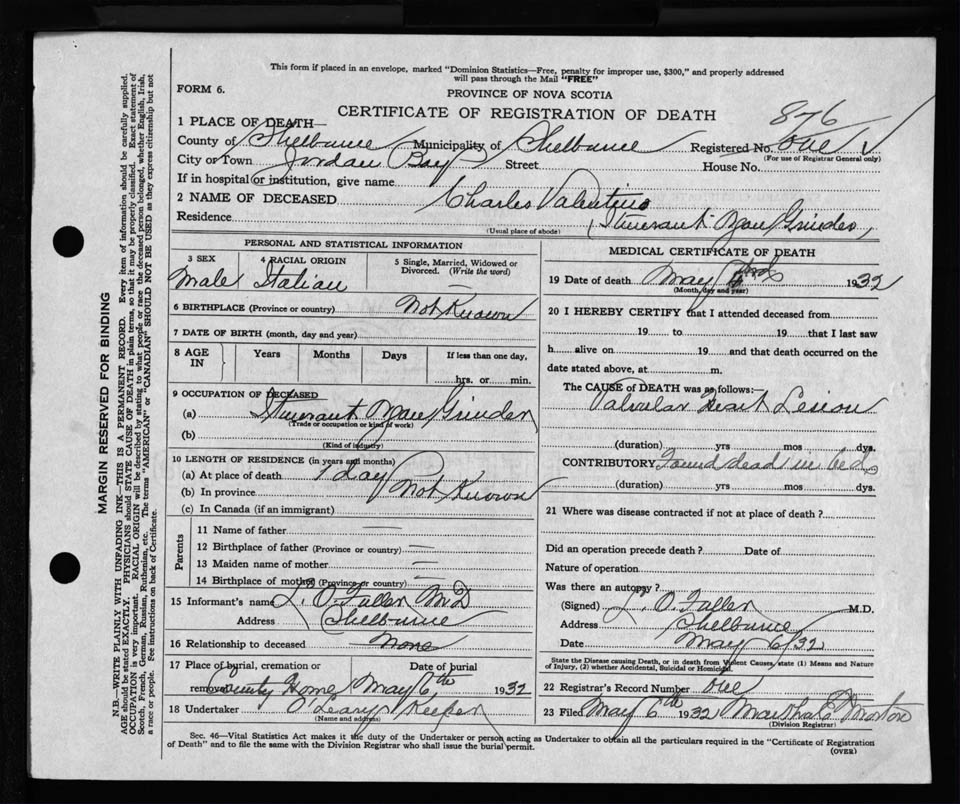 This form if placed in an envelope, marked "Dominion Statistics—Free, penalty for improper use, $300," and properly addressed
will pass through the Mail "FREE"
FORM 6.
PROVINCE OF NOVA SCOTIA
CERTIFICATE OF REGISTRATION OF DEATH
876
1 PLACE OF DEATH—
County of Shelburne Municipality of Shelburne Registered No. one
(For use of Registrar General only)
City or Town Jordan Bay Street House No.
If in hospital or institution, give name
2 NAME OF DECEASED Charles Valentino
Residence Itinerant Grinder
(Usual place of abode)
PERSONAL AND STATISTICAL INFORMATION
3 SEX 4 RACIAL ORIGIN 5 Single, Married, Widowed or Divorced. (Write the word)
Male Italian —
6 BIRTHPLACE (Province or country) Not Known
7 DATE OF BIRTH (month, day and year)
8 AGE IN Years Months Days If less than one day,
hrs. or min.
9 OCCUPATION OF DECEASED
(a) Itinerant Grinder
(Trade or occupation or kind of work)
(b)
(Kind of industry)
10 LENGTH OF RESIDENCE (in years and months)
(a) At place of death 1 day
(b) In province Not Known
(c) In Canada (if an immigrant)
Parents
11 Name of father —
12 Birthplace of father (Province or country) —
13 Maiden name of mother —
14 Birthplace of mother (Province or country) —
15 Informant's name L. O. Fuller M D
Address Shelburne
16 Relationship to deceased None
17 Place of burial, cremation or removal Date of burial
County Home May 6th, 1932
18 Undertaker O'Leary Keeper
(Name and address)
MEDICAL CERTIFICATE OF DEATH
19 Date of death May 1932
(Month, day and year)
20 I HEREBY CERTIFY that I attended deceased from
19 to 19 that I last saw
h alive on 19 and that death occurred on the
date stated above, at m.
The CAUSE of DEATH was as follows:
Valvular Heart Lesion
(duration) yrs mos dys.
CONTRIBUTORY Found dead in bed
(duration) yrs mos dys.
21 Where was disease contracted if not at place of death?
Did an operation precede death? Date of
Nature of operation
Was there an autopsy?
(Signed) L. O. Fuller M.D.
Address Shelburne
Date May 6/32
State the Disease causing Death, or in death from Violent Causes, state (1) Means and Nature
of Injury, (2) whether Accidental, Suicidal or Homicidal.
22 Registrar's Record Number one
23 Filed May 6th 1932 Martha E Morton
(Division Registrar)
Sec. 46—Vital Statistics Act makes it the duty of the Undertaker or person acting as Undertaker to obtain all the particulars required in the "Certificate of Registration
of Death" and to file the same with the Division Registrar who shall issue the burial permit.
(OVER)
MARGIN RESERVED FOR BINDING
N.B.—WRITE PLAINLY WITH UNFADING INK—THIS IS A PERMANENT RECORD. Every item of information should be carefully supplied.
AGE should be stated EXACTLY. PHYSICIANS should STATE CAUSE OF DEATH in plain terms, so that it may be properly classified. Exact statement of
OCCUPATION is very important. RACIAL ORIGIN will be described by stating to what people or race the deceased person belonged, whether English, Irish,
Scotch, French, German, Russian, Ruthenian, etc. The terms "AMERICAN" or "CANADIAN" SHOULD NOT BE USED as they express citizenship but not
a race or people. See instructions on back of Certificate.